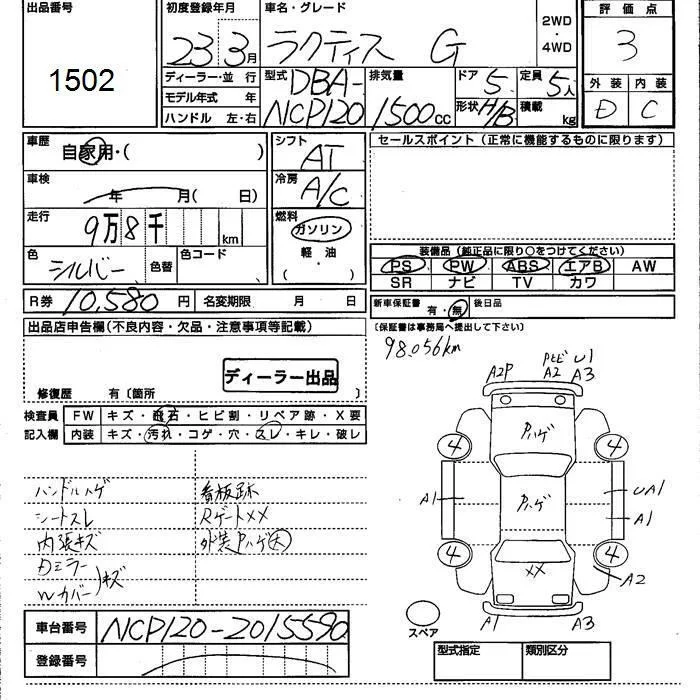 出品番号
1502
初度登録年月
23 3月
車名・グレード
ラクティス G
2WD
・
4WD
評価点
3
外装 内装
D C
ディーラー・並行
モデル年式 年
ハンドル 左・右
型式
DBA-
NCP120
排気量
1500cc
ドア 5
形状 H/B
定員 5人
積載 kg
車歴
自家用・( )
車検
年 月( 日)
走行
9万8千 km
色
シルバー
色替
色コード
シフト
AT
冷房
A/C
燃料
ガソリン
軽・油
( )
セールスポイント (正常に機能するものに限ります)
装備品 (純正品に限り○をつけてください)
PS PW ABS エアB AW
SR ナビ TV カワ
R券 10,580 円 名変期限 月 日
新車保証書 有・無 後日品
(保証書は事務局へ提出して下さい)
出品店申告欄(不良内容・欠品・注意事項等記載)
ディーラー出品
修復歴 有〔箇所 〕
98.056km
検査員
記入欄
FW キズ・飛石・ヒビ割・リペア跡・X要
内装 キズ・汚れ・コゲ・穴・スレ・キレ・破レ
ハンドルハゲ
シートスレ
内張キズ
Dミラー
Wカバー 〉キズ
看板跡
RゲートXX
外装Pハゲ大
A2P
A2
U1
A3
Pハゲ
4 4
A1
Pハゲ
UA1
A1
4 4
XX
A2
A1
A3
スペア
車台番号 NCP120-2015590
登録番号
型式指定 類別区分